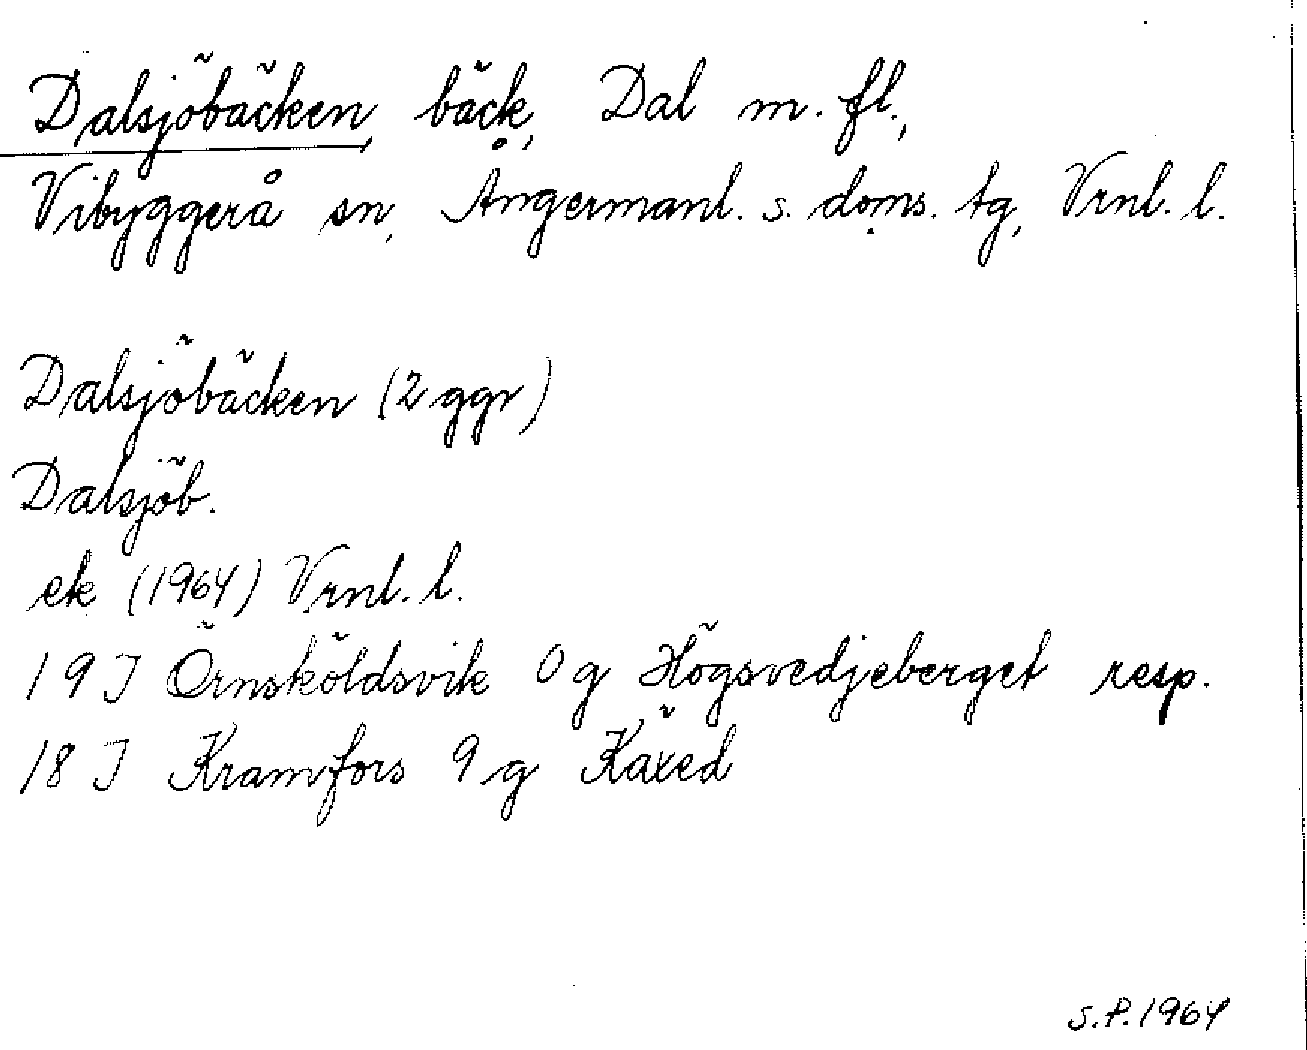 Dalsjöbäcken, bäck, Dal m. fl.,
Vibyggerå sn, Ångermanl. s. doms. tg, Vrnl. l.
Dalsjöbäcken (2 ggr)
Dalsjöb.
ek (1964) Vrnl. l.
19 J Örnsköldsvik 0 g Högsvedjeberget resp.
18 J Kramfors 9 g Käxed
S.P. 1964